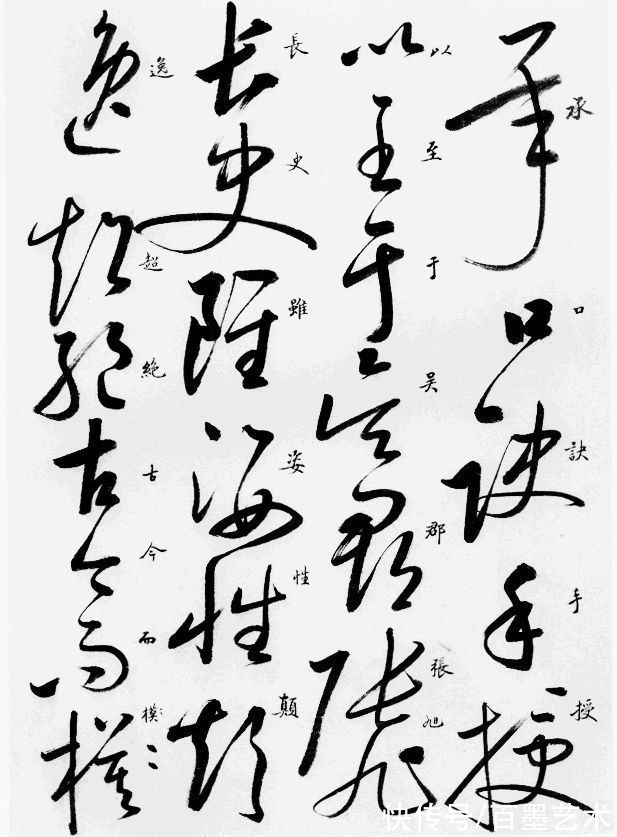 承口訣手授
承口訣手授
以至于吴郡張旭
以至于吴郡張旭
長史雖姿性顛
長史雖姿性顛
逸超絶古今而模
逸超絶古今而模
快传号/百墨艺术